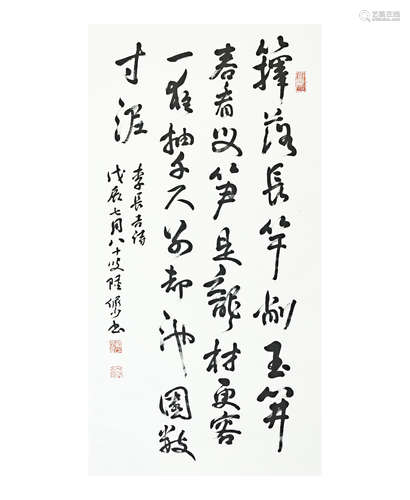 籜落長竿削玉開
君看母笋是龍材更容
一夜抽千尺别却池園數
寸泥
李長吉詩
戊辰七月八十叟陸儼少書